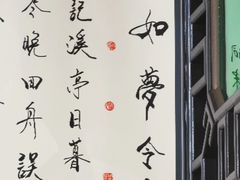 如夢令
記溪亭日暮
尽晚回舟誤